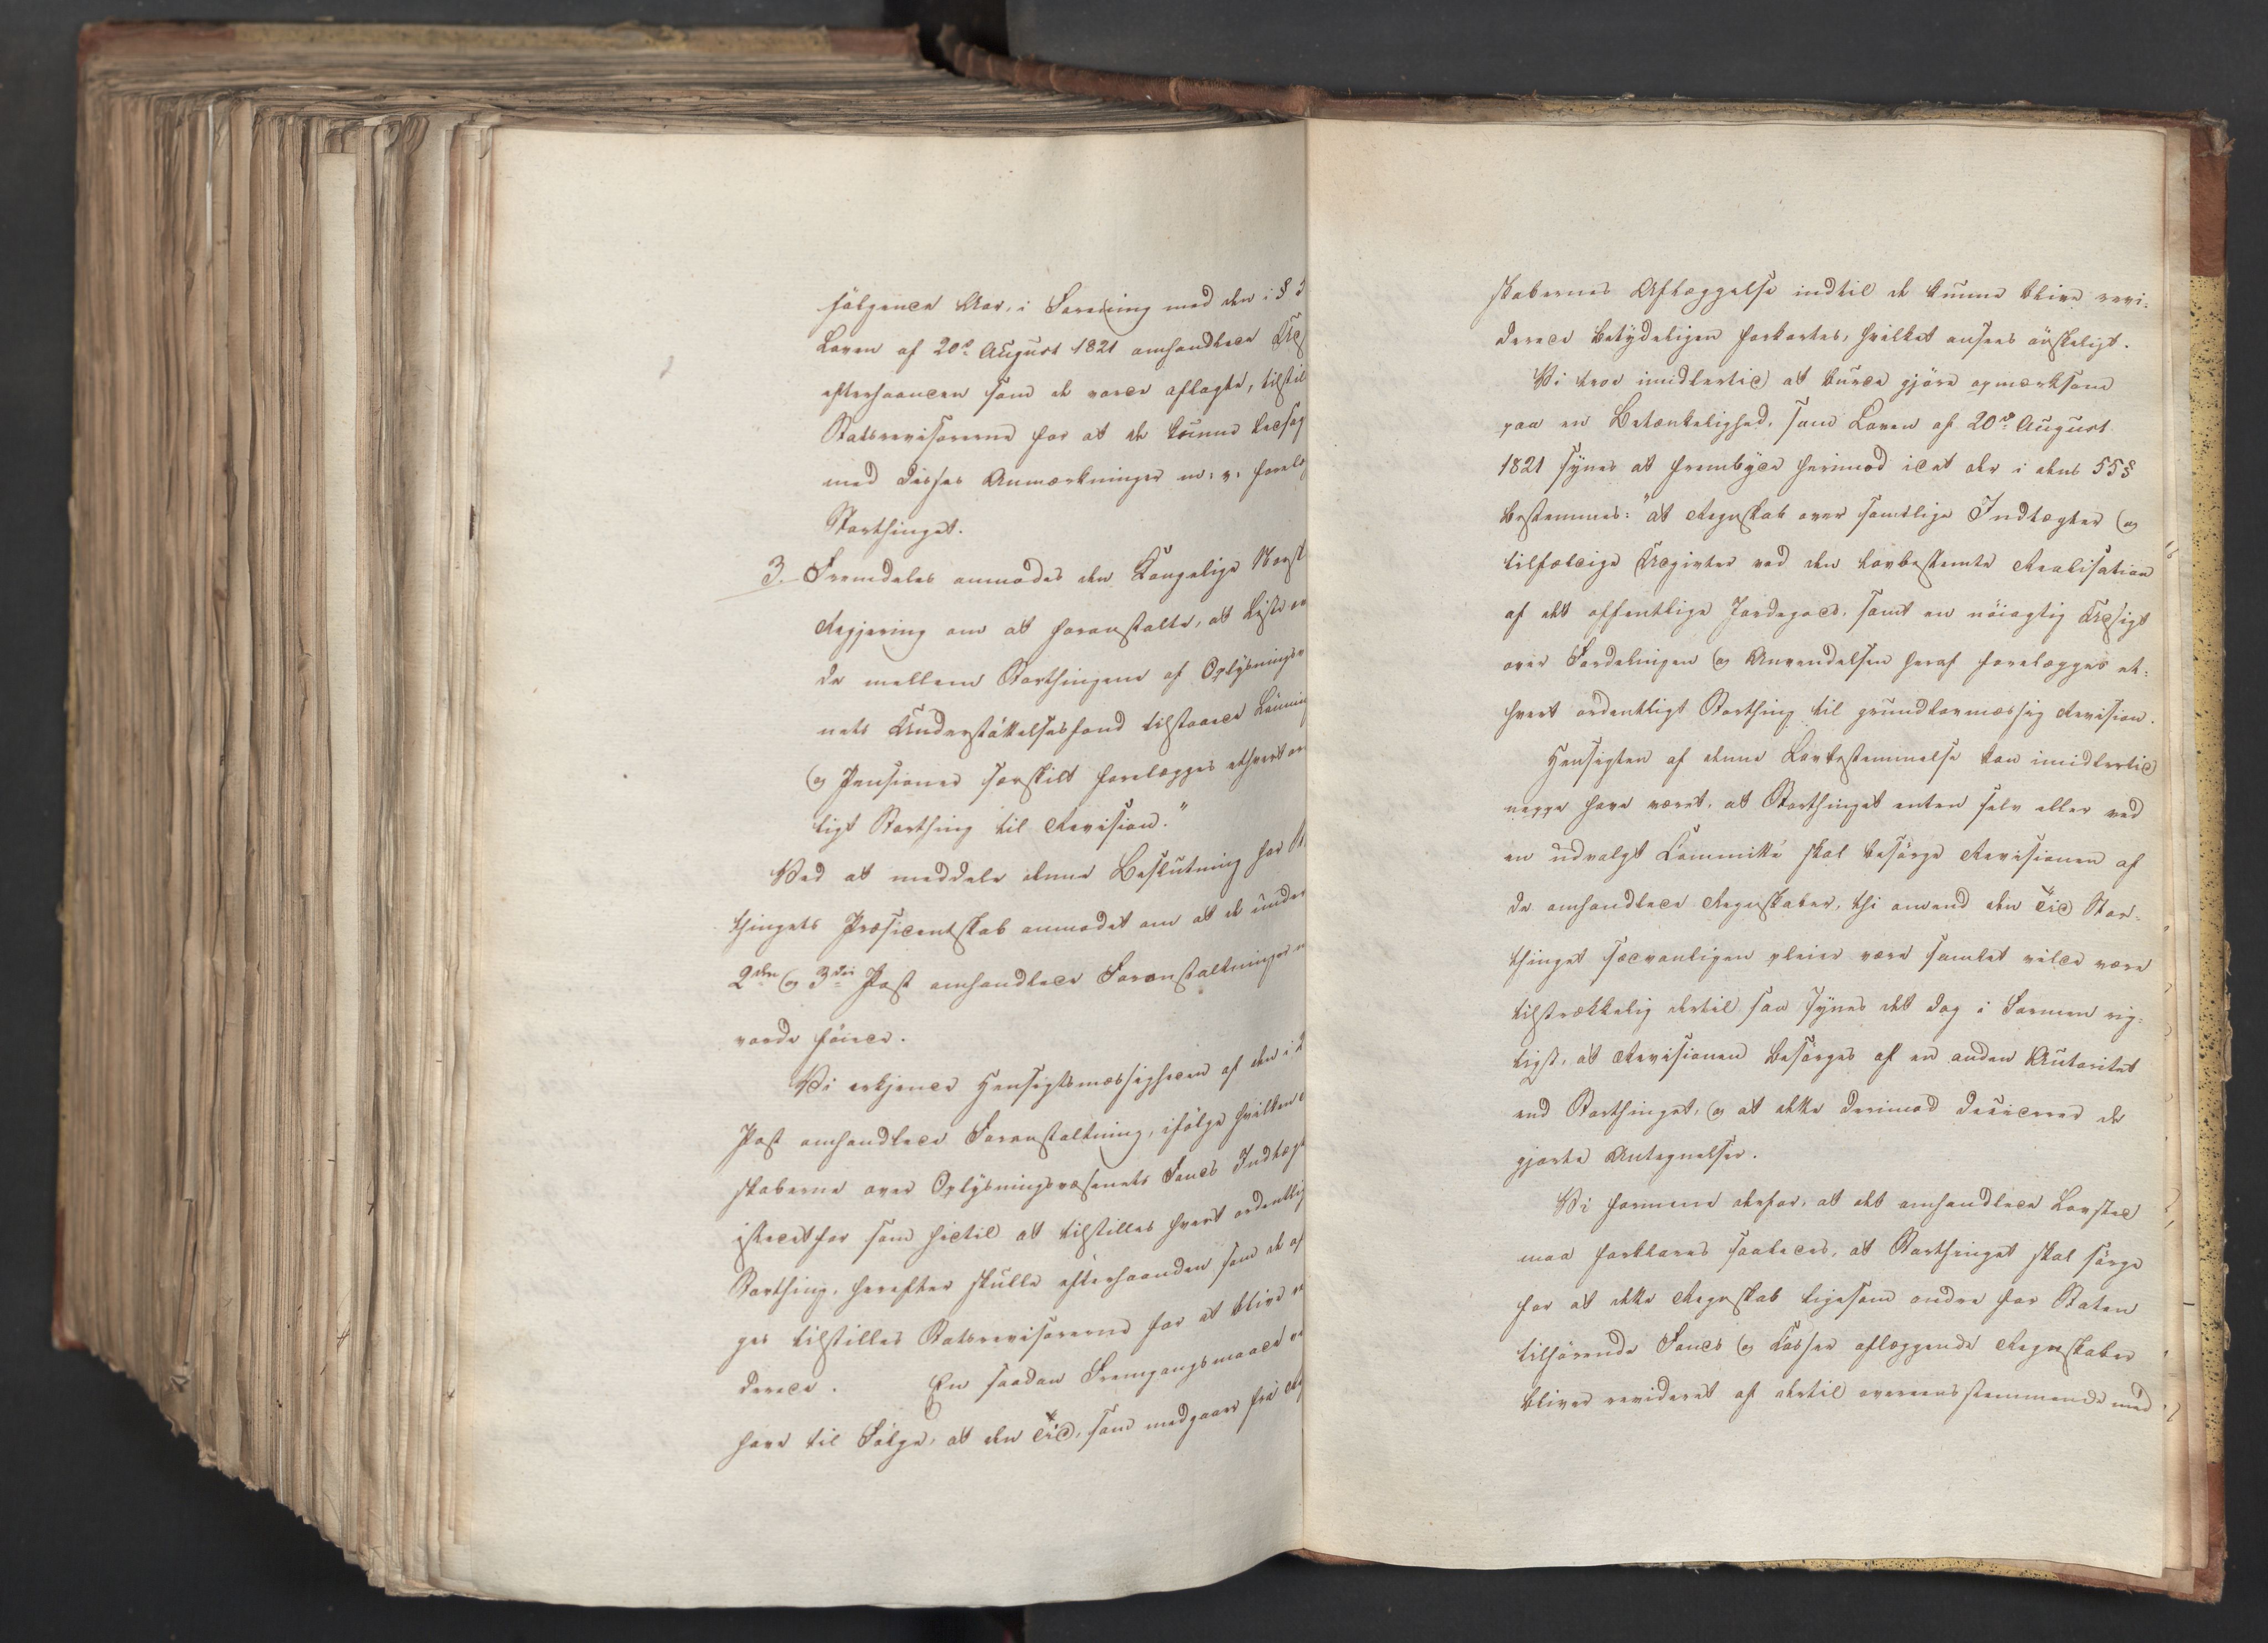 følgende Aar, i Forening med den i §
Loven af 20de August 1821 omhandlede Ud
efterhaanden som de vorde aflagte, tilstil
Statsrevisorerne for at de kunne ledsag
med disses Anmærkninger m: v. forelæ
Storthinget.
3. Fremdeles anmodes den Kongelige Norsk
Regjering om at foranstalte, at Liste ov
de mellem Storthingene af Oplysningsv
nets Understøttelsesfond tilstaaede Lønning
og Pensioner særskilt forelægges ethvert or
ligt Storthing til Revision."
Ved at meddele denne Beslutning har St
thingets Præsidentskab anmodet om at de under
2den og 3die Post omhandlede Foranstaltninger
vorde føiede.
Vi erkjende Hensigtsmæssigheden af den i 2
Post omhandlede Foranstaltning, ifølge hvilken
skaberne over Oplysningsvæsenets Fonds Indtægt
istedetfor som hidtil at tilstilles hvert ordentlig
Storthing, herefter skulle efterhaanden som de af
ges tilstilles Statsrevisorerne for at blive re
derede. En saadan Fremgangsmaade vi
have til Følge, at den Tid, som medgaaer fra Reg
skabernes Aflæggelse indtil de kunne blive revi-
derede betydeligen forkortes, hvilket ansees ønskeligt.
Vi troe imidlertid at burde gjøre opmærksom
paa en Betænkelighed, som Loven af 20de August
1821 synes at frembyde herimod idet der i dens 55 §
bestemmes: "at Regnskab over samtlige Indtægter og
tilfældige Udgivter ved den lovbestemte Realisation
af det offentlige Jordegods, samt en nøiagtig Udsigt
over Fordelingen og Anvendelsen heraf forelægges et-
hvert ordentligt Storthing til grundlovmæssig Revision.
Hensigten af denne Lovbestemmelse kan imidlertid
neppe have været, at Storthinget enten selv eller ved
en udvalgt Committé skal besørge Revisionen af
de omhandlede Regnskaber, thi omend den Tid Stor-
thinget sædvanligen pleier være samlet vilde være
tilstrækkelig dertil saa synes det dog i Formen rig-
tigst, at Revisionen besørges af en anden Autoritet
end Storthinget, og at dette derimod deciderer de
gjorte Antegnelser.
Vi formene derfor, at det omhandlede Lovsted
maa forklares saaledes, at Storthinget skal sørge
for at dette Regnskab ligesom andre for Staten
tilhørende Fonds og Kasser aflæggende Regnskaber
bliver revideret af dertil overeensstemmende med